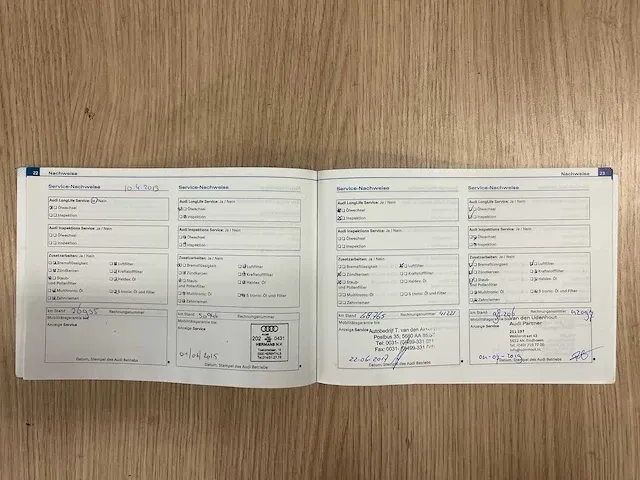 22 Nachweise
Service-Nachweise 10.4.2013
Audi LongLife Service: Ja / Nein
Ölwechsel
Inspektion
Audi Inspektions Service: Ja / Nein
Ölwechsel
Inspektion
Zusatzarbeiten: Ja / Nein
Bremsflüssigkeit
Luftfilter
Zündkerzen
Kraftstofffilter
Staub- und Pollenfilter
Haldex Öl
Multitronic Öl
S tronic Öl und Filter
Zahnriemen
km Stand
Rechnungsnummer
Mobilitätsgarantie bis
Anzeige Service
Datum, Stempel des Audi Betriebs
Audi LongLife Service: Ja / Nein
Ölwechsel
Inspektion
Audi Inspektions Service: Ja / Nein
Ölwechsel
Inspektion
Zusatzarbeiten: Ja / Nein
Bremsflüssigkeit
Luftfilter
Zündkerzen
Kraftstofffilter
Staub- und Pollenfilter
Haldex Öl
Multitronic Öl
S tronic Öl und Filter
Zahnriemen
km Stand
Rechnungsnummer
Mobilitätsgarantie bis
Anzeige Service
202 0431
HERMANS N.V.
Datum, Stempel des Audi Betriebs
Nachweise 23
Service-Nachweise
Audi LongLife Service: Ja / Nein
Ölwechsel
Inspektion
Audi Inspektions Service: Ja / Nein
Ölwechsel
Inspektion
Zusatzarbeiten: Ja / Nein
Bremsflüssigkeit
Luftfilter
Zündkerzen
Kraftstofffilter
Staub- und Pollenfilter
Haldex Öl
Multitronic Öl
S tronic Öl und Filter
Zahnriemen
km Stand 68.765
Rechnungsnummer
Mobilitätsgarantie bis
Anzeige Service
Autobedrijf T. van den
Postbus 35, 5680 AA
22-06-2017
Datum, Stempel des Audi Betriebs
Service-Nachweise
Audi LongLife Service: Ja / Nein
Ölwechsel
Inspektion
Audi Inspektions Service: Ja / Nein
Ölwechsel
Inspektion
Zusatzarbeiten: Ja / Nein
Bremsflüssigkeit
Luftfilter
Zündkerzen
Kraftstofffilter
Staub- und Pollenfilter
Haldex Öl
Multitronic Öl
S tronic Öl und Filter
Zahnriemen
km Stand
Rechnungsnummer
Mobilitätsgarantie bis
van den Udenhout
Anzeige Service
Audi Partner
Datum, Stempel des Audi Betriebs